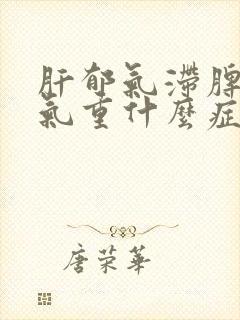 肝郁氣滯脾
氣重什麼症
唐荣華